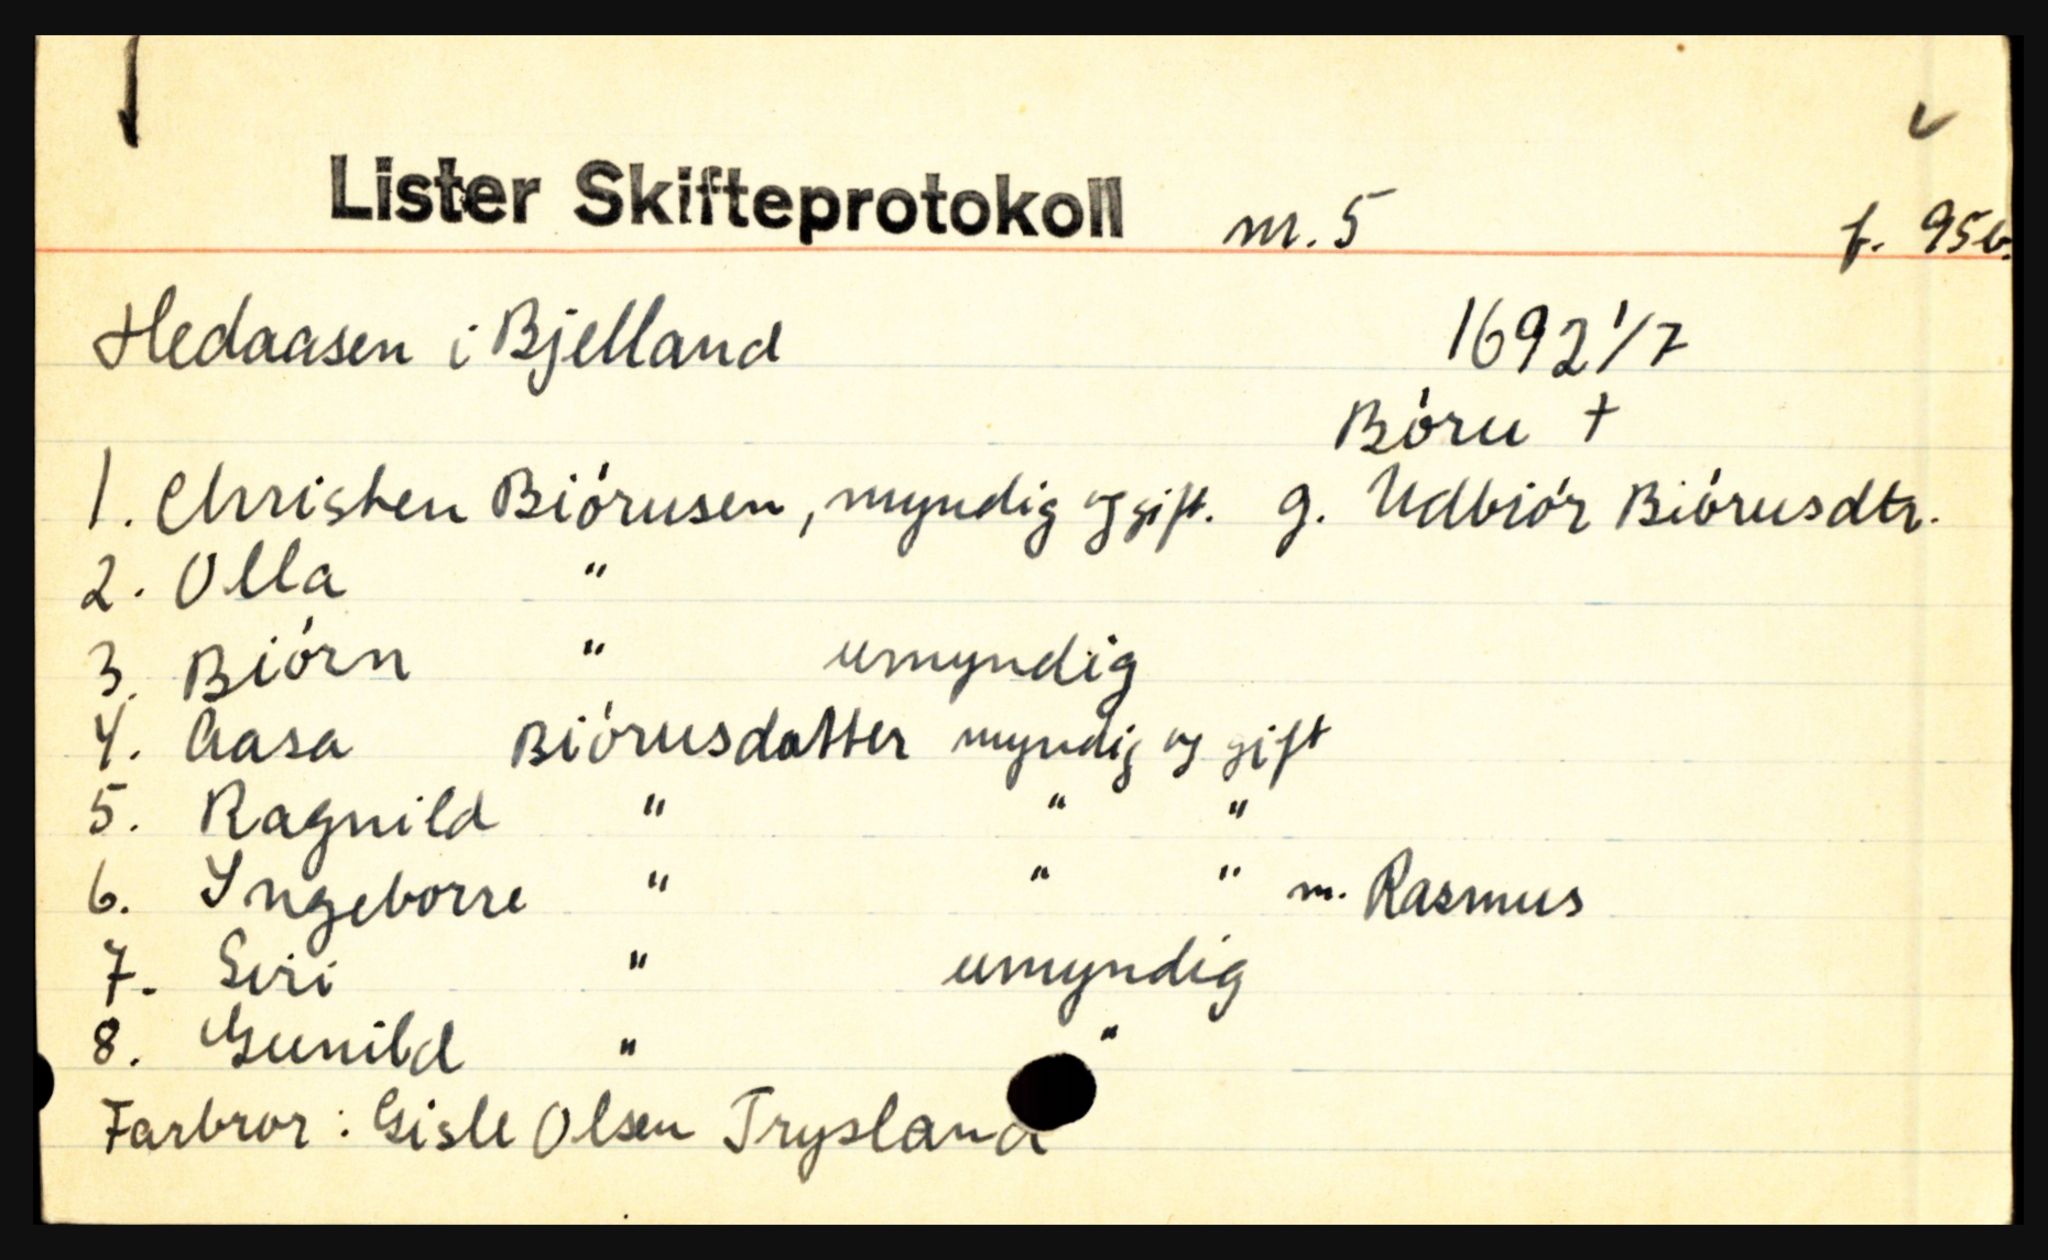 Lister Skifteprotokoll nr. 5 f. 95b.
Hedaasen i Bjelland 1692 1/7
Bóru +
1. Christen Biórusen, myndig og gift. g. Udbiór Biórusdtr.
2. Olla "
3. Biórn " umyndig
4. Aasa Biórusdatter myndig og gift
5. Ragnild " " "
6. Ingeborre " " " m. Rasmus
7. Siri " umyndig
8. Gunild " "
Farbror: Gisle Olsen Trysland